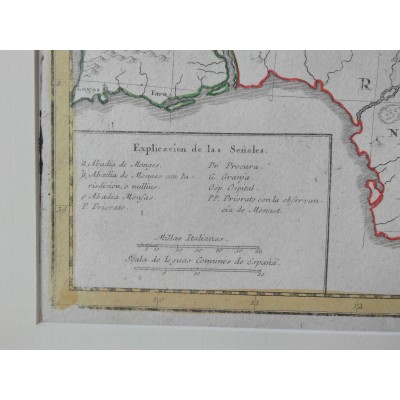 Lagos
Faro
R
N
Explicacion de las Señales.
Abadia de Monges.
Abadia de Monges con Ju
risdicion, o nullius.
Abadia Monjas
P. Priorato.
Pro. Procura.
G. Granja.
Osp. Ospital.
PP. Priorato con la observan
cia de Monast.
Millas Italianas.
Escala de leguas Comunes de España.